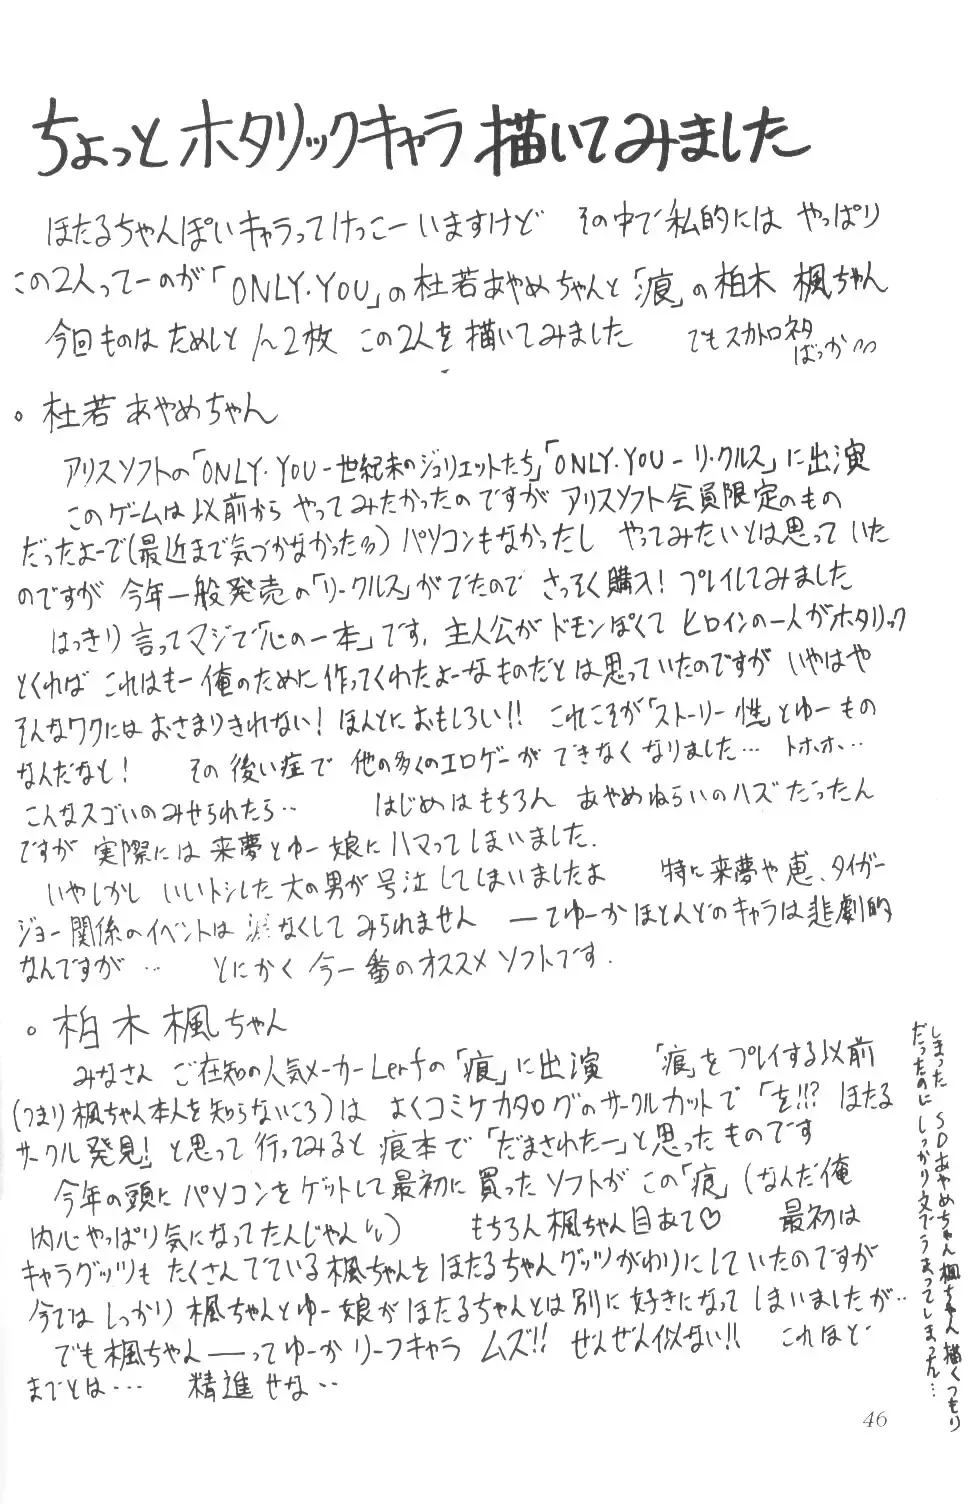 ちょっとホタリックキャラ描いてみました
ほたるちゃんぽいキャラってけっこーいますけど その中で私的には やっぱり
この2人ってーのが「ONLY・YOU」の杜若あやめちゃんと「痕」の柏木 楓ちゃん
今回ものは ためしと 2枚 この2人を描いてみました でもスカトロネタ
ばっか
。杜若あやめちゃん
アリスソフトの「ONLY・YOU－世紀末のジュリエットたち」「ONLY・YOU－リ・クルス」に出演
このゲームは以前から やってみたかったのですが アリスソフト会員限定のもの
だったよーで(最近まで気づかなかった) パソコンもなかったし やってみたいとは思っていた
のですが 今年一般発売の「リ・クルス」がでたので さっそく購入! プレイしてみました
はっきり言ってマジで「心の一本」です. 主人公が ドモンぽくて ヒロインの一人がホタリック
とくれば これはもー俺のために作ってくれたよーなものだとは思っていたのですが いやはや
そんなワクにはおさまりきれない! ほんとにおもしろい!! これこそが「ストーリー性」とゆーもの
なんだなと! その後い症で 他の多くのエロゲーができなくなりました… トホホ…
こんなスゴいのみせられたら‥ はじめはもちろん あやめねらいのハズだったん
ですが 実際には来夢とゆー娘にハマってしまいました.
いやしかし いいトシした大の男が号泣してしまいましたよ 特に来夢や恵、タイガー
ジョー関係のイベントは 涙なくしてみられません ーてゆーかほとんどのキャラは悲劇的
なんですが … とにかく今一番のオススメソフトです.
。柏木楓ちゃん
みなさん ご存知の人気メーカーLeafの「痕」に出演 「痕」をプレイする以前
(つまり楓ちゃん本人を知らないころ)は よくコミケカタログのサークルカットで「を!!? ほたる
サークル発見!」と思って行ってみると 痕本で「だまされたー」と思ったものです
今年の頭にパソコンをゲットして最初に買ったソフトが この「痕」(なんだ俺
内心やっぱり気になってたんじゃん) もちろん楓ちゃん目あて♡ 最初は
キャラグッツもたくさんでている楓ちゃんをほたるちゃんグッツがわりにしていたのですが
今ではしっかり楓ちゃんとゆー娘がほたるちゃんとは別に好きになってしまいましたが‥
でも楓ちゃんーってゆーか リーフキャラ ムズ!! ぜんぜん似ない!! これほど
までとは… 精進せな‥
しまった SDあやめちゃん楓ちゃん描くつもり
だったのにしっかり文でうまってしまった…
46